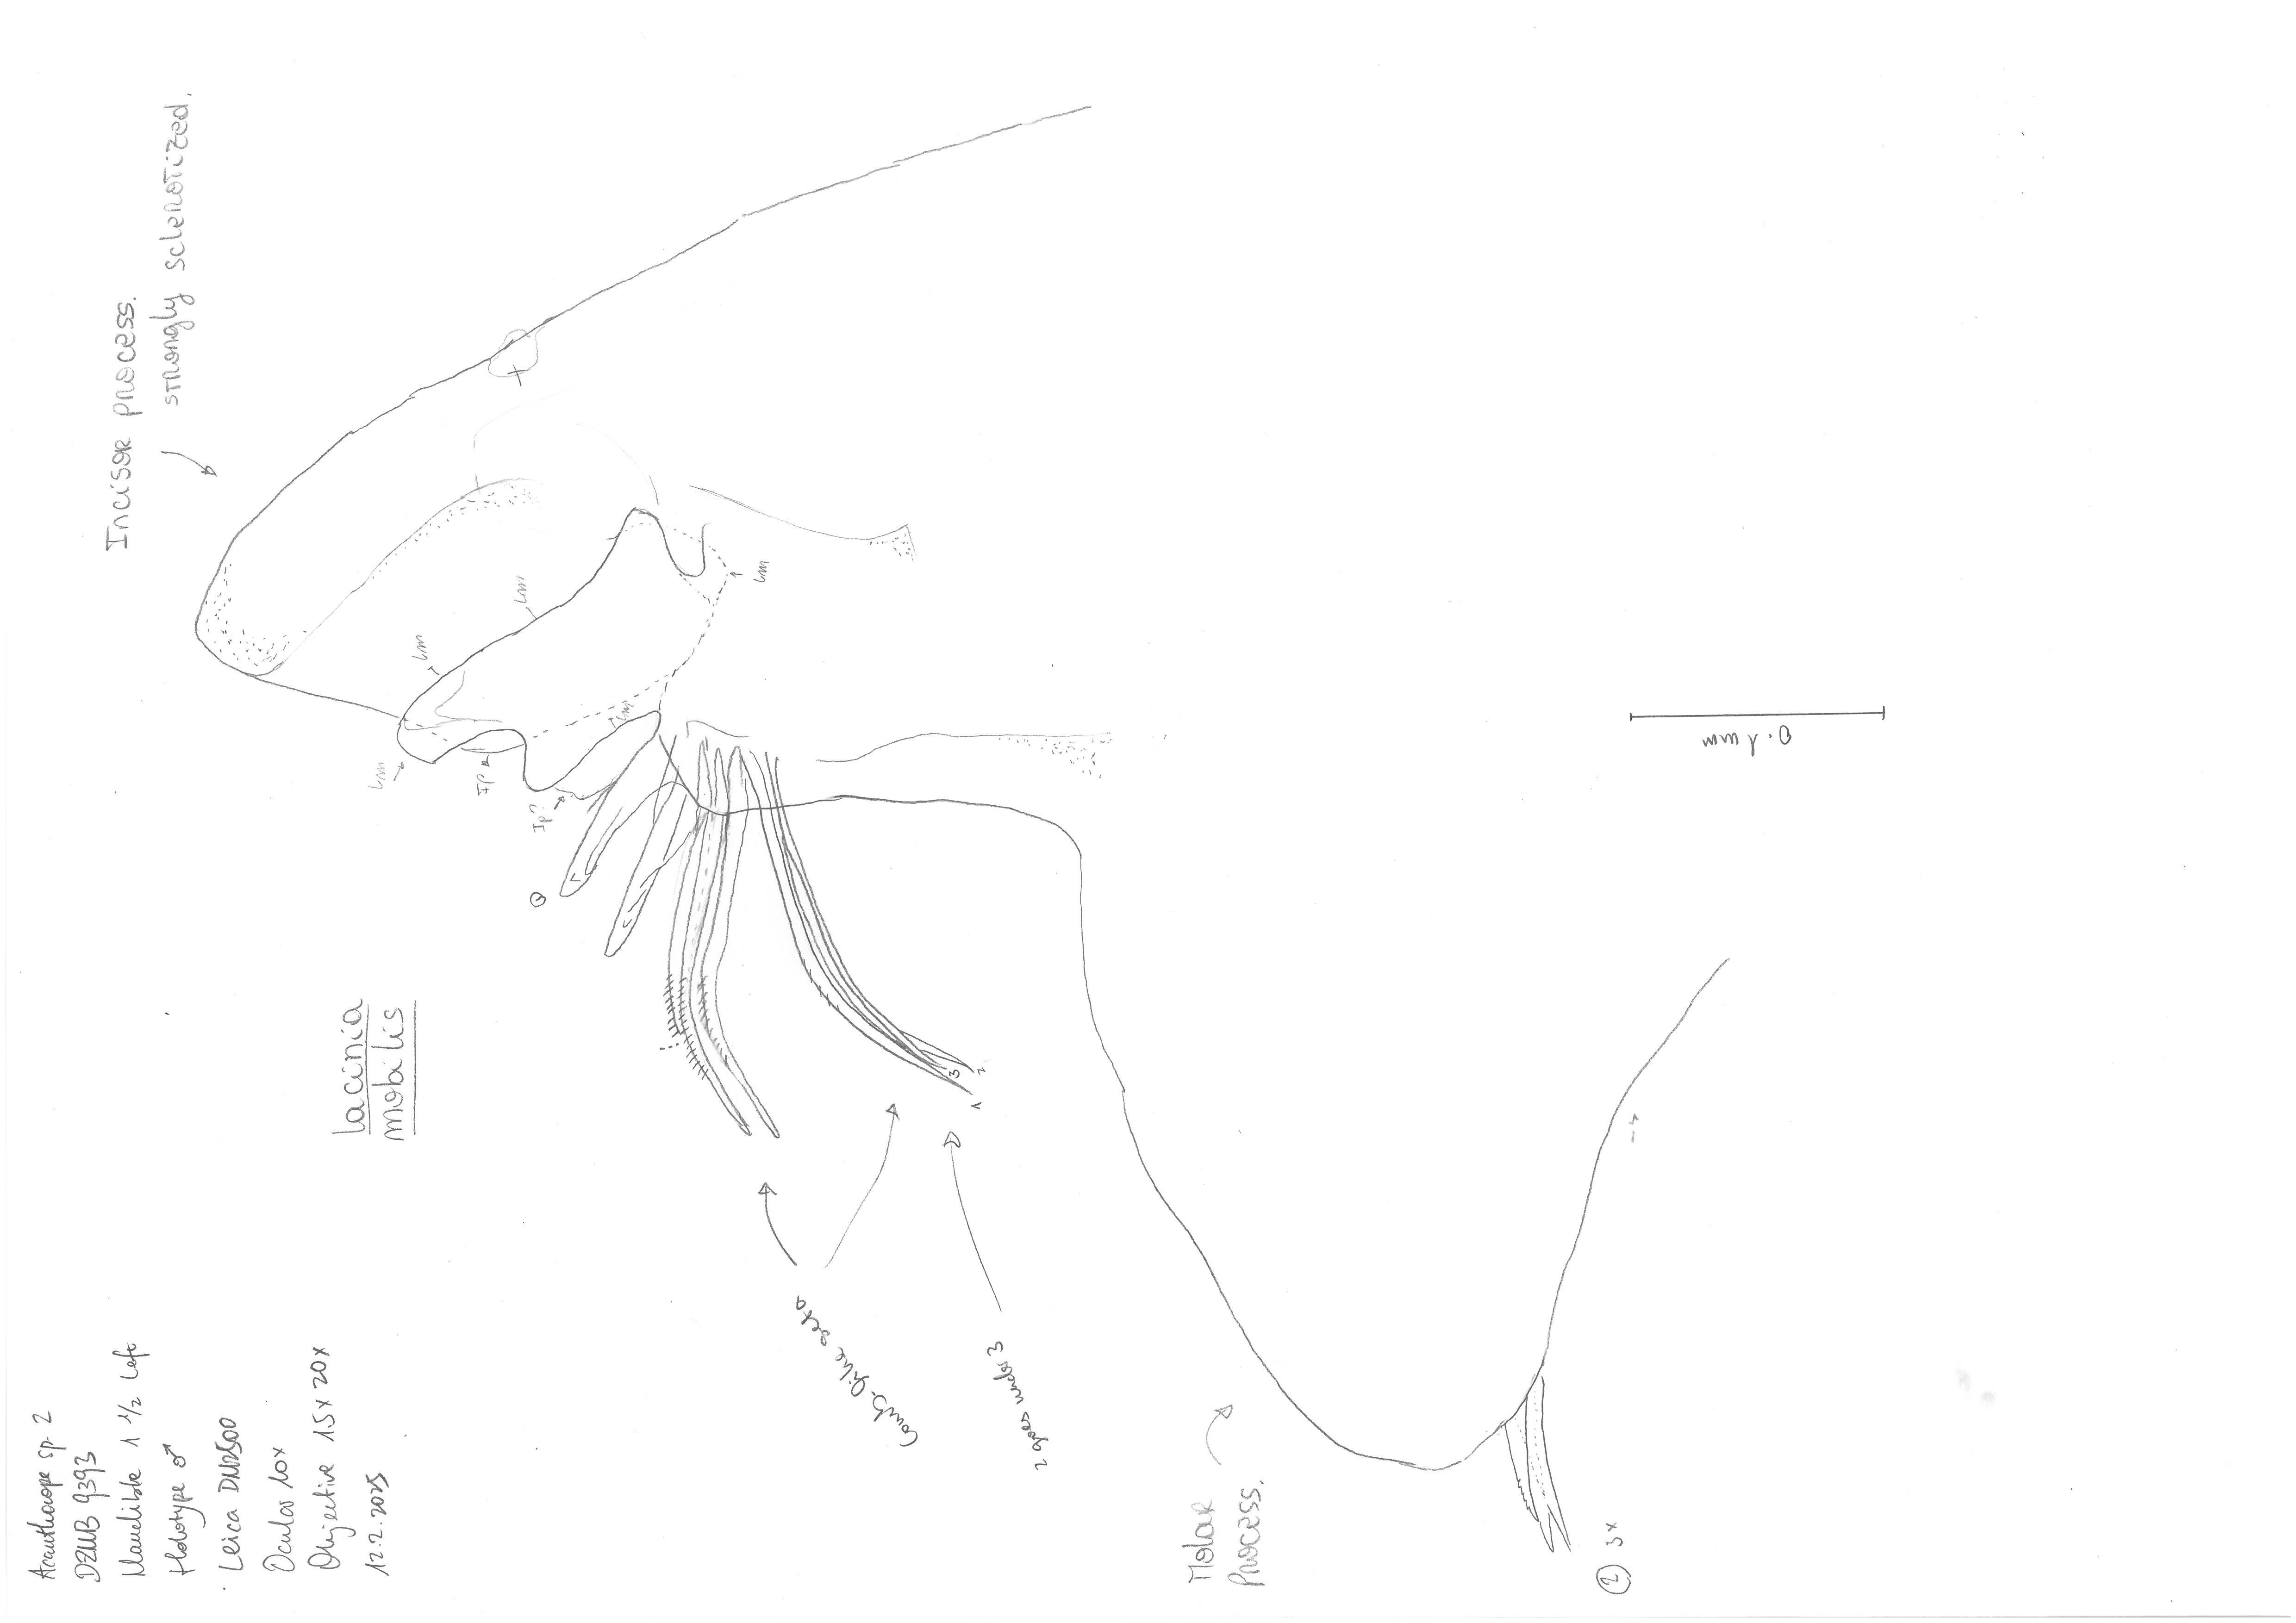 Acanthocope sp. 2
DZMB 9393
Mandible 1 1/2 left
Holotype ♂
Leica DM2500
Ocular 10x
Objective 1.5x 20x
12.2.2025
Incisor process.
strongly sclerotized.
lacinia
mobilis
Lm
Lm
Ip
Lm
Ip?
Lm
Lm
comb-like seta
1
3
2
2 goes under 3
Molar
Process.
② 3x
0.1 mm